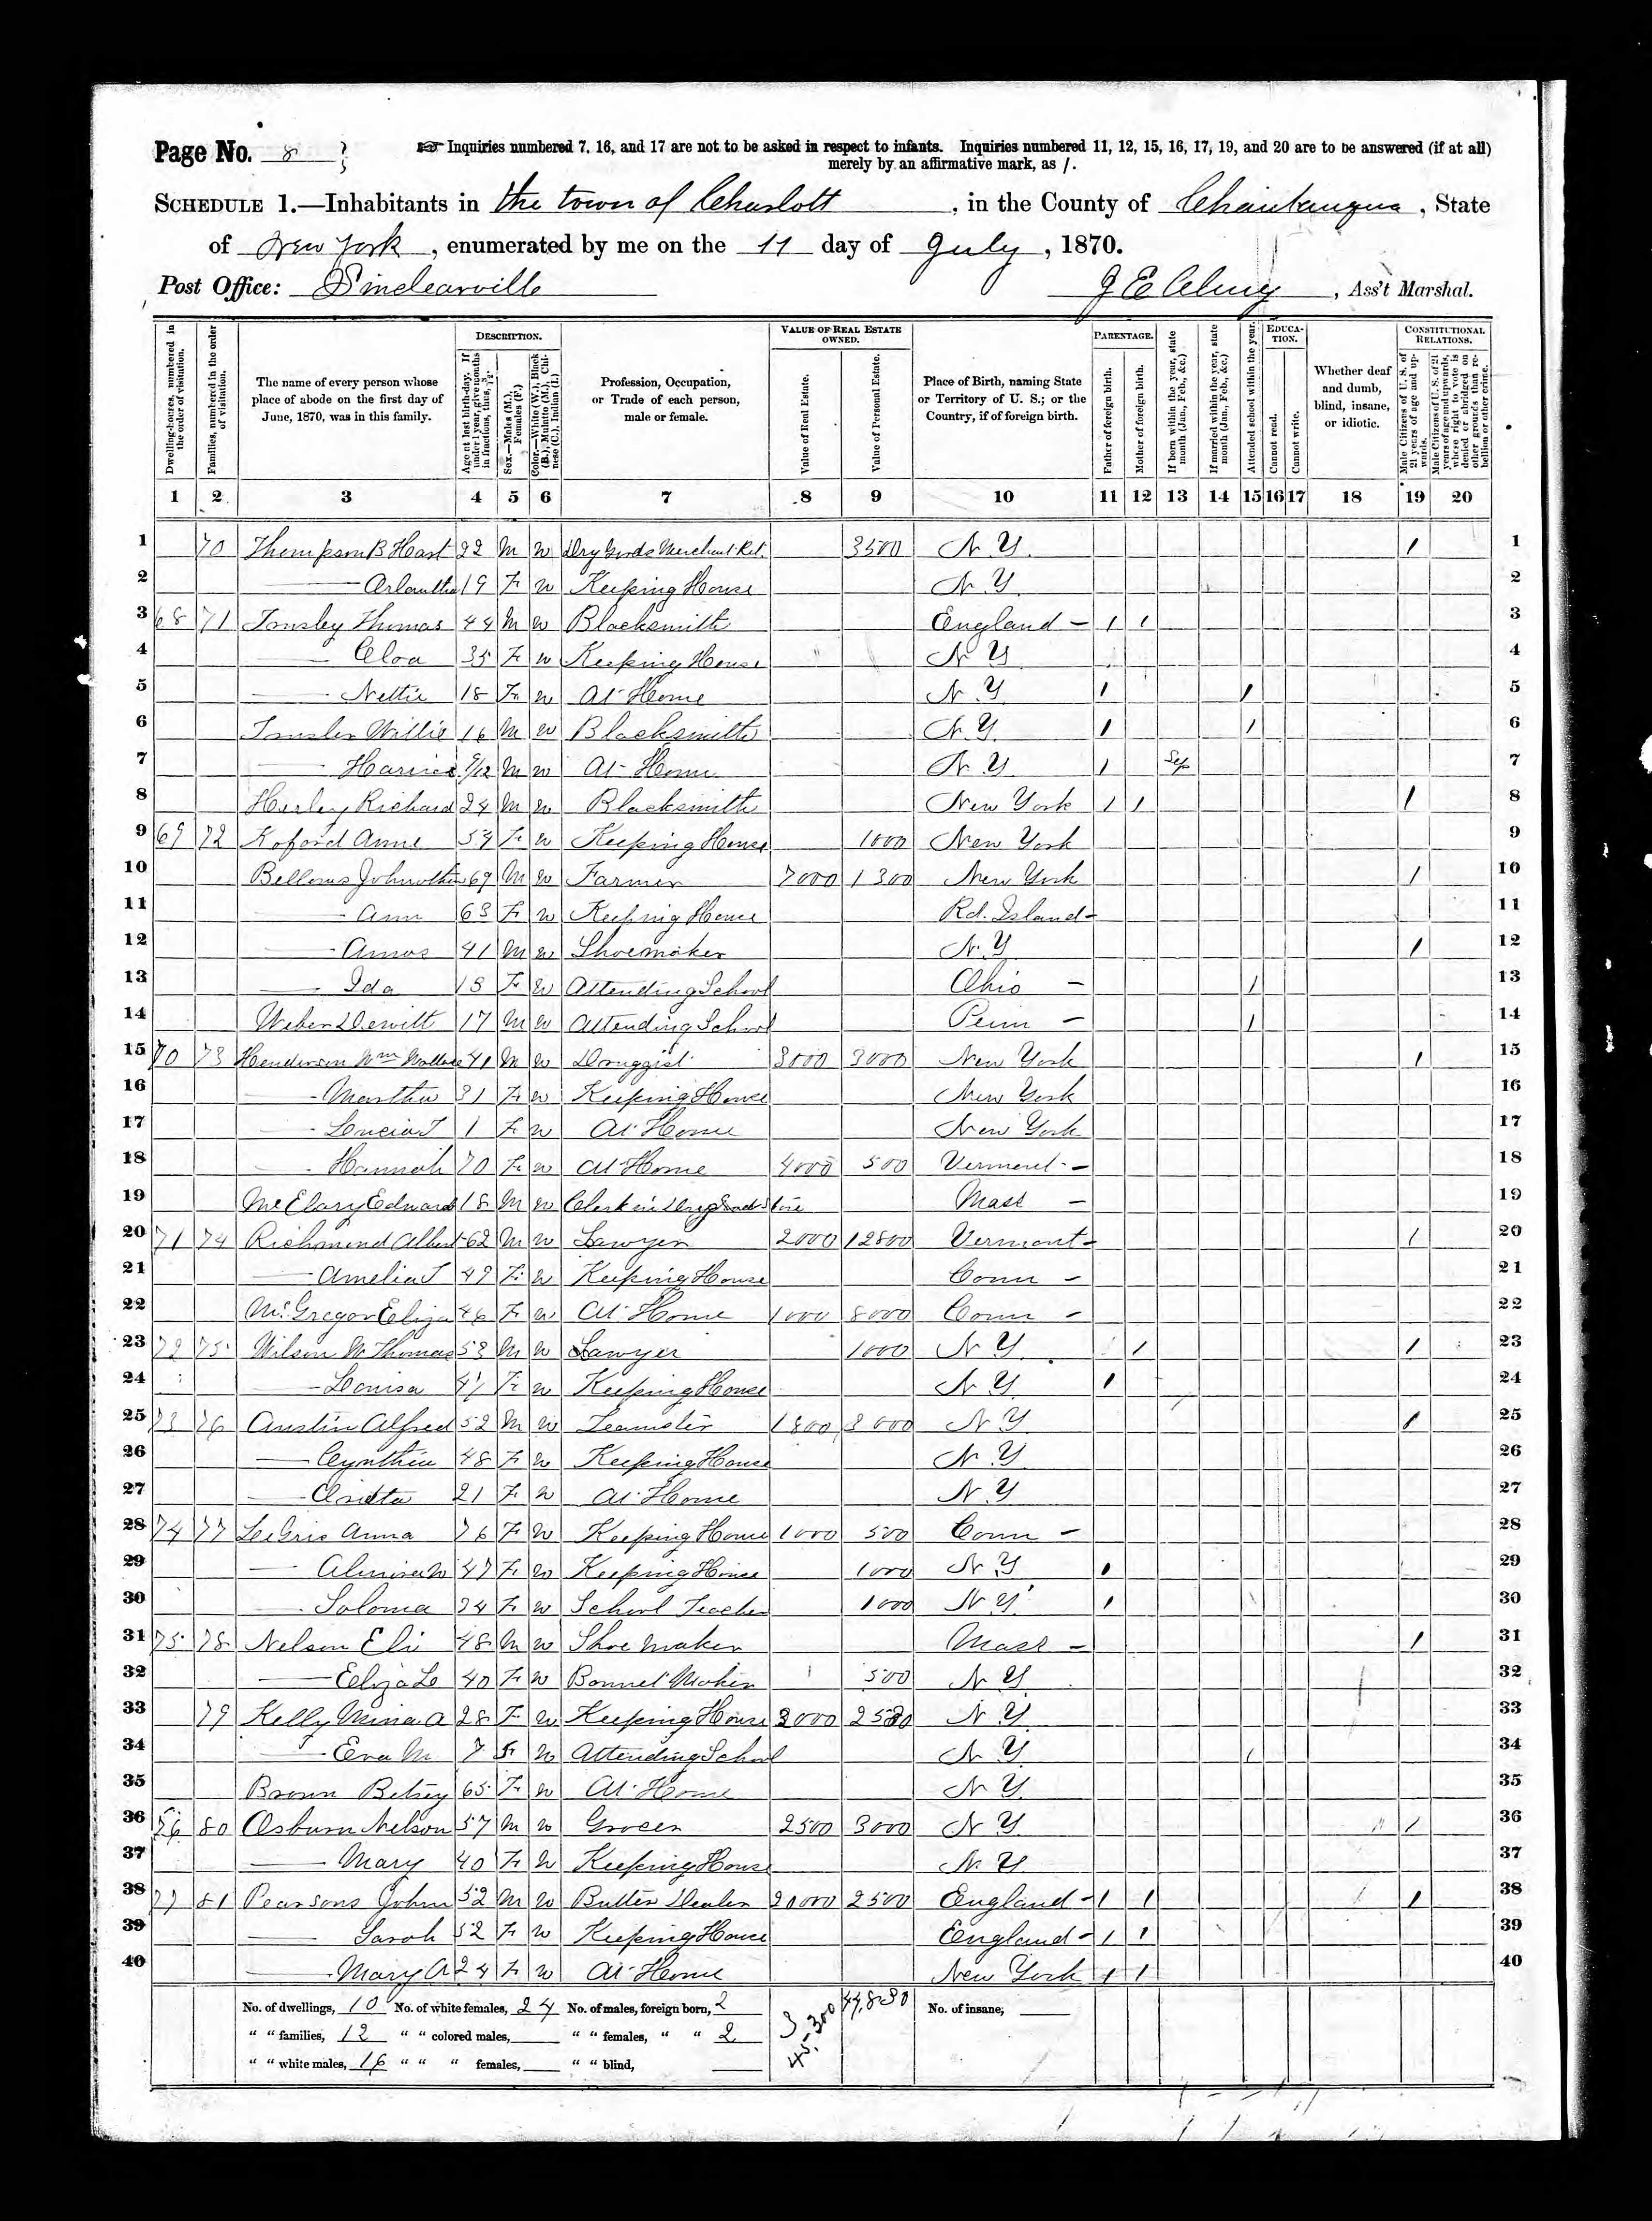 Page No. 8
☞ Inquiries numbered 7, 16, and 17 are not to be asked in respect to infants. Inquiries numbered 11, 12, 15, 16, 17, 19, and 20 are to be answered (if at all)
merely by an affirmative mark, as /.
SCHEDULE 1.—Inhabitants in the town of Charlott, in the County of Chautauqua, State
of New York, enumerated by me on the 11 day of July, 1870.
Post Office: Sinclearville
, Ass't Marshal.
Dwelling-houses, numbered in the order of visitation.
Families, numbered in the order of visitation.
The name of every person whose place of abode on the first day of June, 1870, was in this family.
DESCRIPTION.
Age at last birth-day. If under 1 year, give months in fractions, thus, 3/12.
Sex.—Males (M.), Females (F.)
Color.—White (W.), Black (B.), Mulatto (M.), Chinese (C.), Indian (I.)
Profession, Occupation, or Trade of each person, male or female.
VALUE OF REAL ESTATE OWNED.
Value of Real Estate.
Value of Personal Estate.
Place of Birth, naming State or Territory of U. S.; or the Country, if of foreign birth.
PARENTAGE.
Father of foreign birth.
Mother of foreign birth.
If born within the year, state month (Jan., Feb., &c.)
If married within the year, state month (Jan., Feb., &c.)
Attended school within the year.
EDUCATION.
Cannot read.
Cannot write.
Whether deaf and dumb, blind, insane, or idiotic.
CONSTITUTIONAL RELATIONS.
Male Citizens of U. S. of 21 years of age and upwards.
Male Citizens of U. S. of 21 years of age and upwards, whose right to vote is denied or abridged on other grounds than rebellion or other crime.
1 2 3 4 5 6 7 8 9 10 11 12 13 14 15 16 17 18 19 20
1 70 Thompson B Hart 22 M W Dry Goods Merchant Ret. 3500 N.Y. / 1
2 — 19 F W Keeping House N.Y. 2
3 68 71 Tousley Thomas 44 M W Blacksmith England – / / 3
4 — Cloa 35 F W Keeping House N Y 4
5 — Nettie 18 F W At Home N.Y / / 5
6 Tousley Willie 16 M W Blacksmith N.Y. / / 6
7 — 9/12 M W At Home N Y / Sep 7
8 Hurley Richard 24 M W Blacksmith New York / / / 8
9 69 72 Koford Anne 54 F W Keeping House 1000 New York 9
10 Bellows Johnothan 69 M W Farmer 7000 1300 New York / 10
11 — Ann 63 F W Keeping House Rd. Island – 11
12 — Amos 41 M W Shoemaker N.Y / 12
13 — Ida 13 F W Attending School Ohio – / 13
14 Weber Dewitt 17 M W Attending School Penn – / 14
15 70 73 Henderson Wm Wallace 41 M W Druggist 3000 3000 New York / 15
16 — Martha 31 F W Keeping House New York 16
17 — Lucia T 1 F W At Home New York 17
18 — Hannah 70 F W At Home 4000 500 Vermont – 18
19 Mc Clary Edward 18 M W Clerk in Drug Store Mass – 19
20 71 74 Richmond Albert 62 M W Lawyer 2000 12800 Vermont – / 20
21 — Amelia T 49 F W Keeping House Conn – 21
22 McGregor Eliza 46 F W At Home 1000 8000 Conn – 22
23 72 75 Wilson W Thomas 53 M W Lawyer 1000 N Y / / 23
24 — Louisa 41 F W Keeping House N Y / 24
25 73 76 Austin Alfred 52 M W Teamster 1800 3000 N Y / 25
26 — Cynthia 48 F W Keeping House N.Y 26
27 — 21 F W At Home N.Y 27
28 74 77 Anna 76 F W Keeping House 1000 500 Conn – 28
29 — 47 F W Keeping House 1000 N.Y / 29
30 — Saloma 24 F W School Teacher 1000 N Y / 30
31 75 78 Nelson Eli 48 M W Shoe Maker Mass – / 31
32 — Eliza Le 40 F W Bonnet Maker 500 N Y 32
33 79 Kelly Mina A 28 F W Keeping House 3000 2530 N Y. 33
34 — Eva M 7 F W Attending School N Y. / 34
35 Brown Betsey 65 F W At Home N Y. 35
36 76 80 Osburn Nelson 57 M W Grocer 2500 3000 N Y. / 36
37 — Mary 40 F W Keeping House N. Y 37
38 77 81 Pearsons John 52 M W Butter Dealer 20000 2500 England – / / / 38
39 — Sarah 52 F W Keeping House England – / / 39
40 — Mary A 24 F W At Home New York / / 40
No. of dwellings, 10 No. of white females, 24 No. of males, foreign born, 2 45,300 44,830 No. of insane,
" " families, 12 " " colored males, " " females, " " 2
" " white males, 16 " " " females, " " blind,